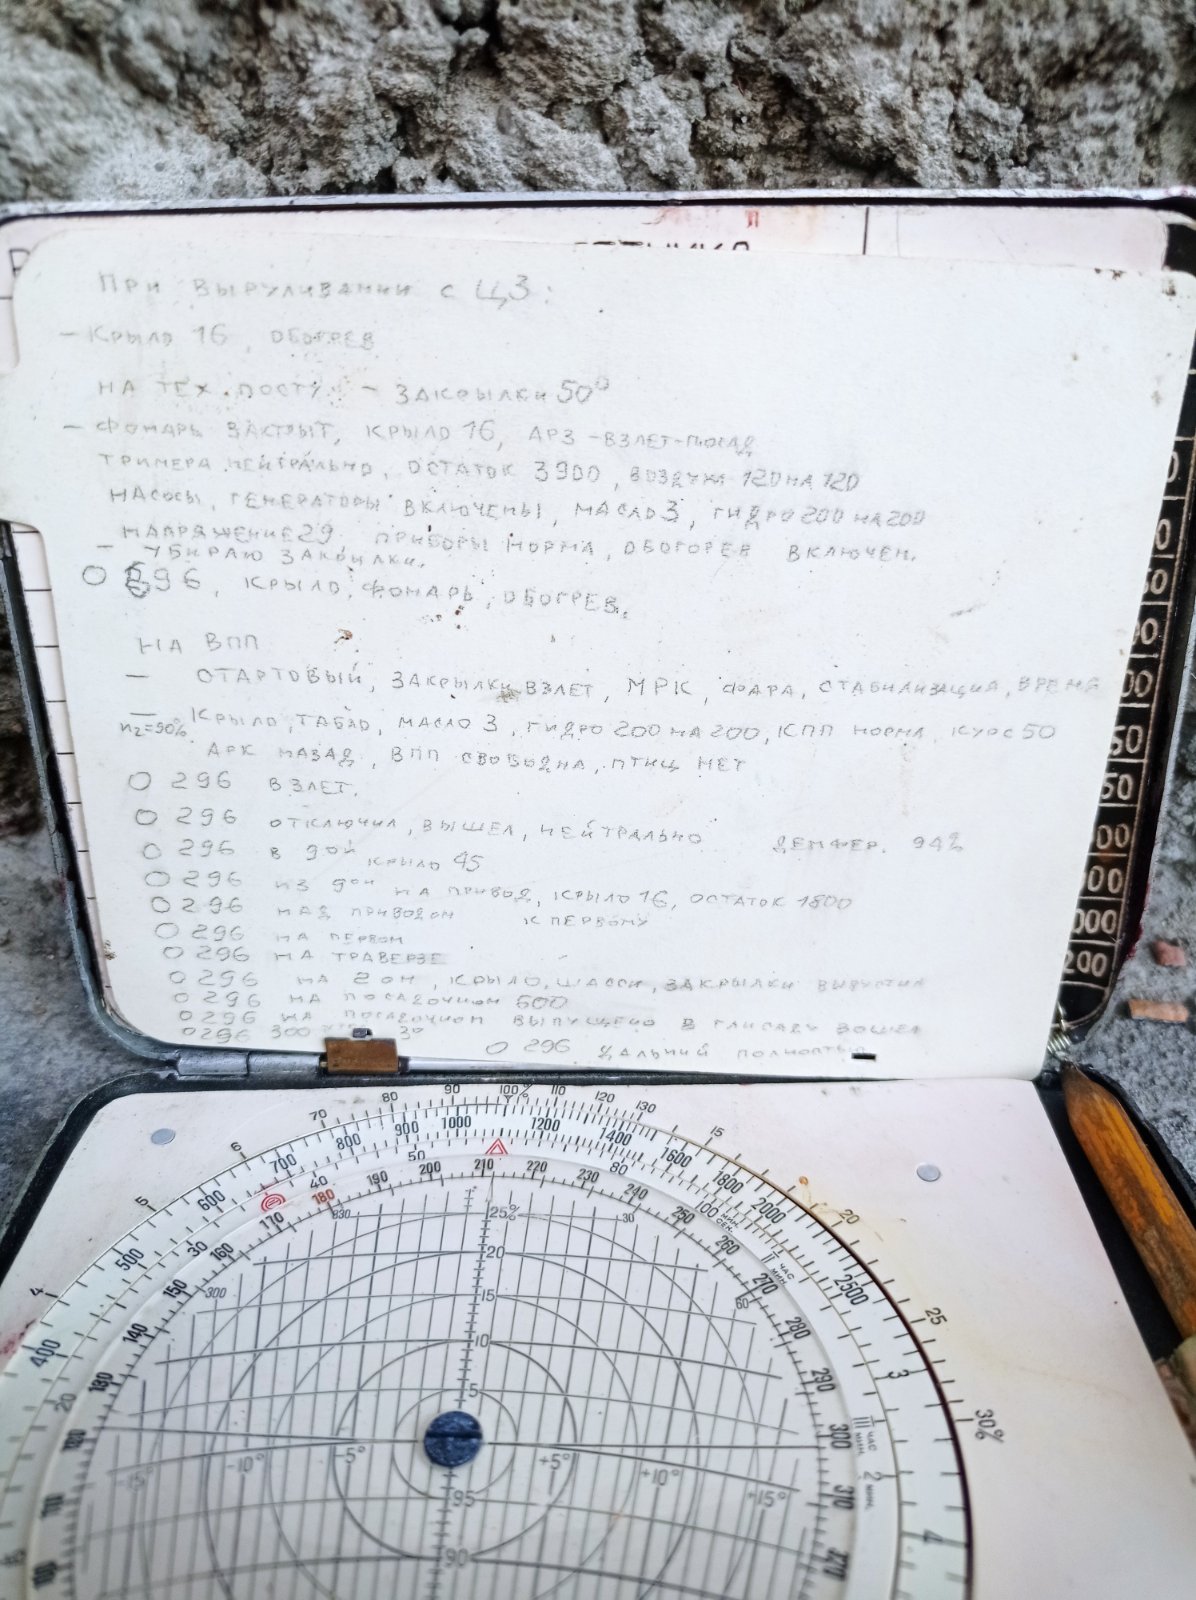 ПРИ ВЫРУЛИВАНИИ С ЦЗ:
- КРЫЛО 16, ОБОГРЕВ
НА ТЕХ. ПОСТУ - ЗАКРЫЛКИ 50°
- ФОНАРЬ ЗАКРЫТ, КРЫЛО 16, АРЗ-ВЗЛЕТ-ПОСАД
ТРИМЕРА НЕЙТРАЛЬНО, ОСТАТОК 3900, ВОЗДУХ 120 НА 120
НАСОСЫ, ГЕНЕРАТОРЫ ВКЛЮЧЕНЫ, МАСЛО 3, ГИДРО 200 НА 200
НАПРЯЖЕНИЕ 29 ПРИБОРЫ НОРМА, ОБОГОРЕВ ВКЛЮЧЕН.
- УБИРАЮ ЗАКРЫЛКИ.
О 296, КРЫЛО, ФОНАРЬ, ОБОГРЕВ.
НА ВПП
- СТАРТОВЫЙ, ЗАКРЫЛКИ ВЗЛЕТ, МРК, ФАРА, СТАБИЛИЗАЦИЯ, ВРЕМЯ
- n2=90% КРЫЛО, ТАБЛО, МАСЛО 3, ГИДРО 200 НА 200, КПП НОРМА, КУРС 50
АРК НАЗАД, ВПП СВОБОДНА, ПТИЦ НЕТ
О 296 ВЗЛЕТ.
О 296 ОТКЛЮЧИЛ, ВЫШЕЛ, НЕЙТРАЛЬНО ДЕМФЕР. 94%
О 296 В 9ОЙ КРЫЛО 45
О 296 ИЗ 9ОЙ НА ПРИВОД, КРЫЛО 16, ОСТАТОК 1800
О 296 НАД ПРИВОДОМ К ПЕРВОМУ
О 296 НА ПЕРВОМ
О 296 НА ТРАВЕРЗЕ
О 296 НА 2ОМ, КРЫЛО, ШАССИ, ЗАКРЫЛКИ ВЫПУСТИЛ
О 296 НА ПОСАДОЧНОМ 600
О 296 НА ПОСАДОЧНОМ ВЫПУЩЕНО В ГЛИСАДУ ВОШЕЛ
О 296 300
О 296 ДАЛЬНИЙ ПОЛНОСТЬЮ
0
50
0
00
50
50
00
00
000
200
4 5 6 70 80 90 100% 110 120 130 15 20 25 30%
400 500 600 700 800 900 1000 1200 1400 1600 1800 2000 2500 3 4
20 30 40 50 80 100 МИН. СЕК. II ЧАС МИН. III ЧАС МИН. 2 МИН.
130 140 150 160 170 180 190 200 210 220 230 240 250 260 270 280 290 300 310
830 30
300 60
25%
20
15
10
5
-15° -10° -5° +5° +10° +15°
95
90